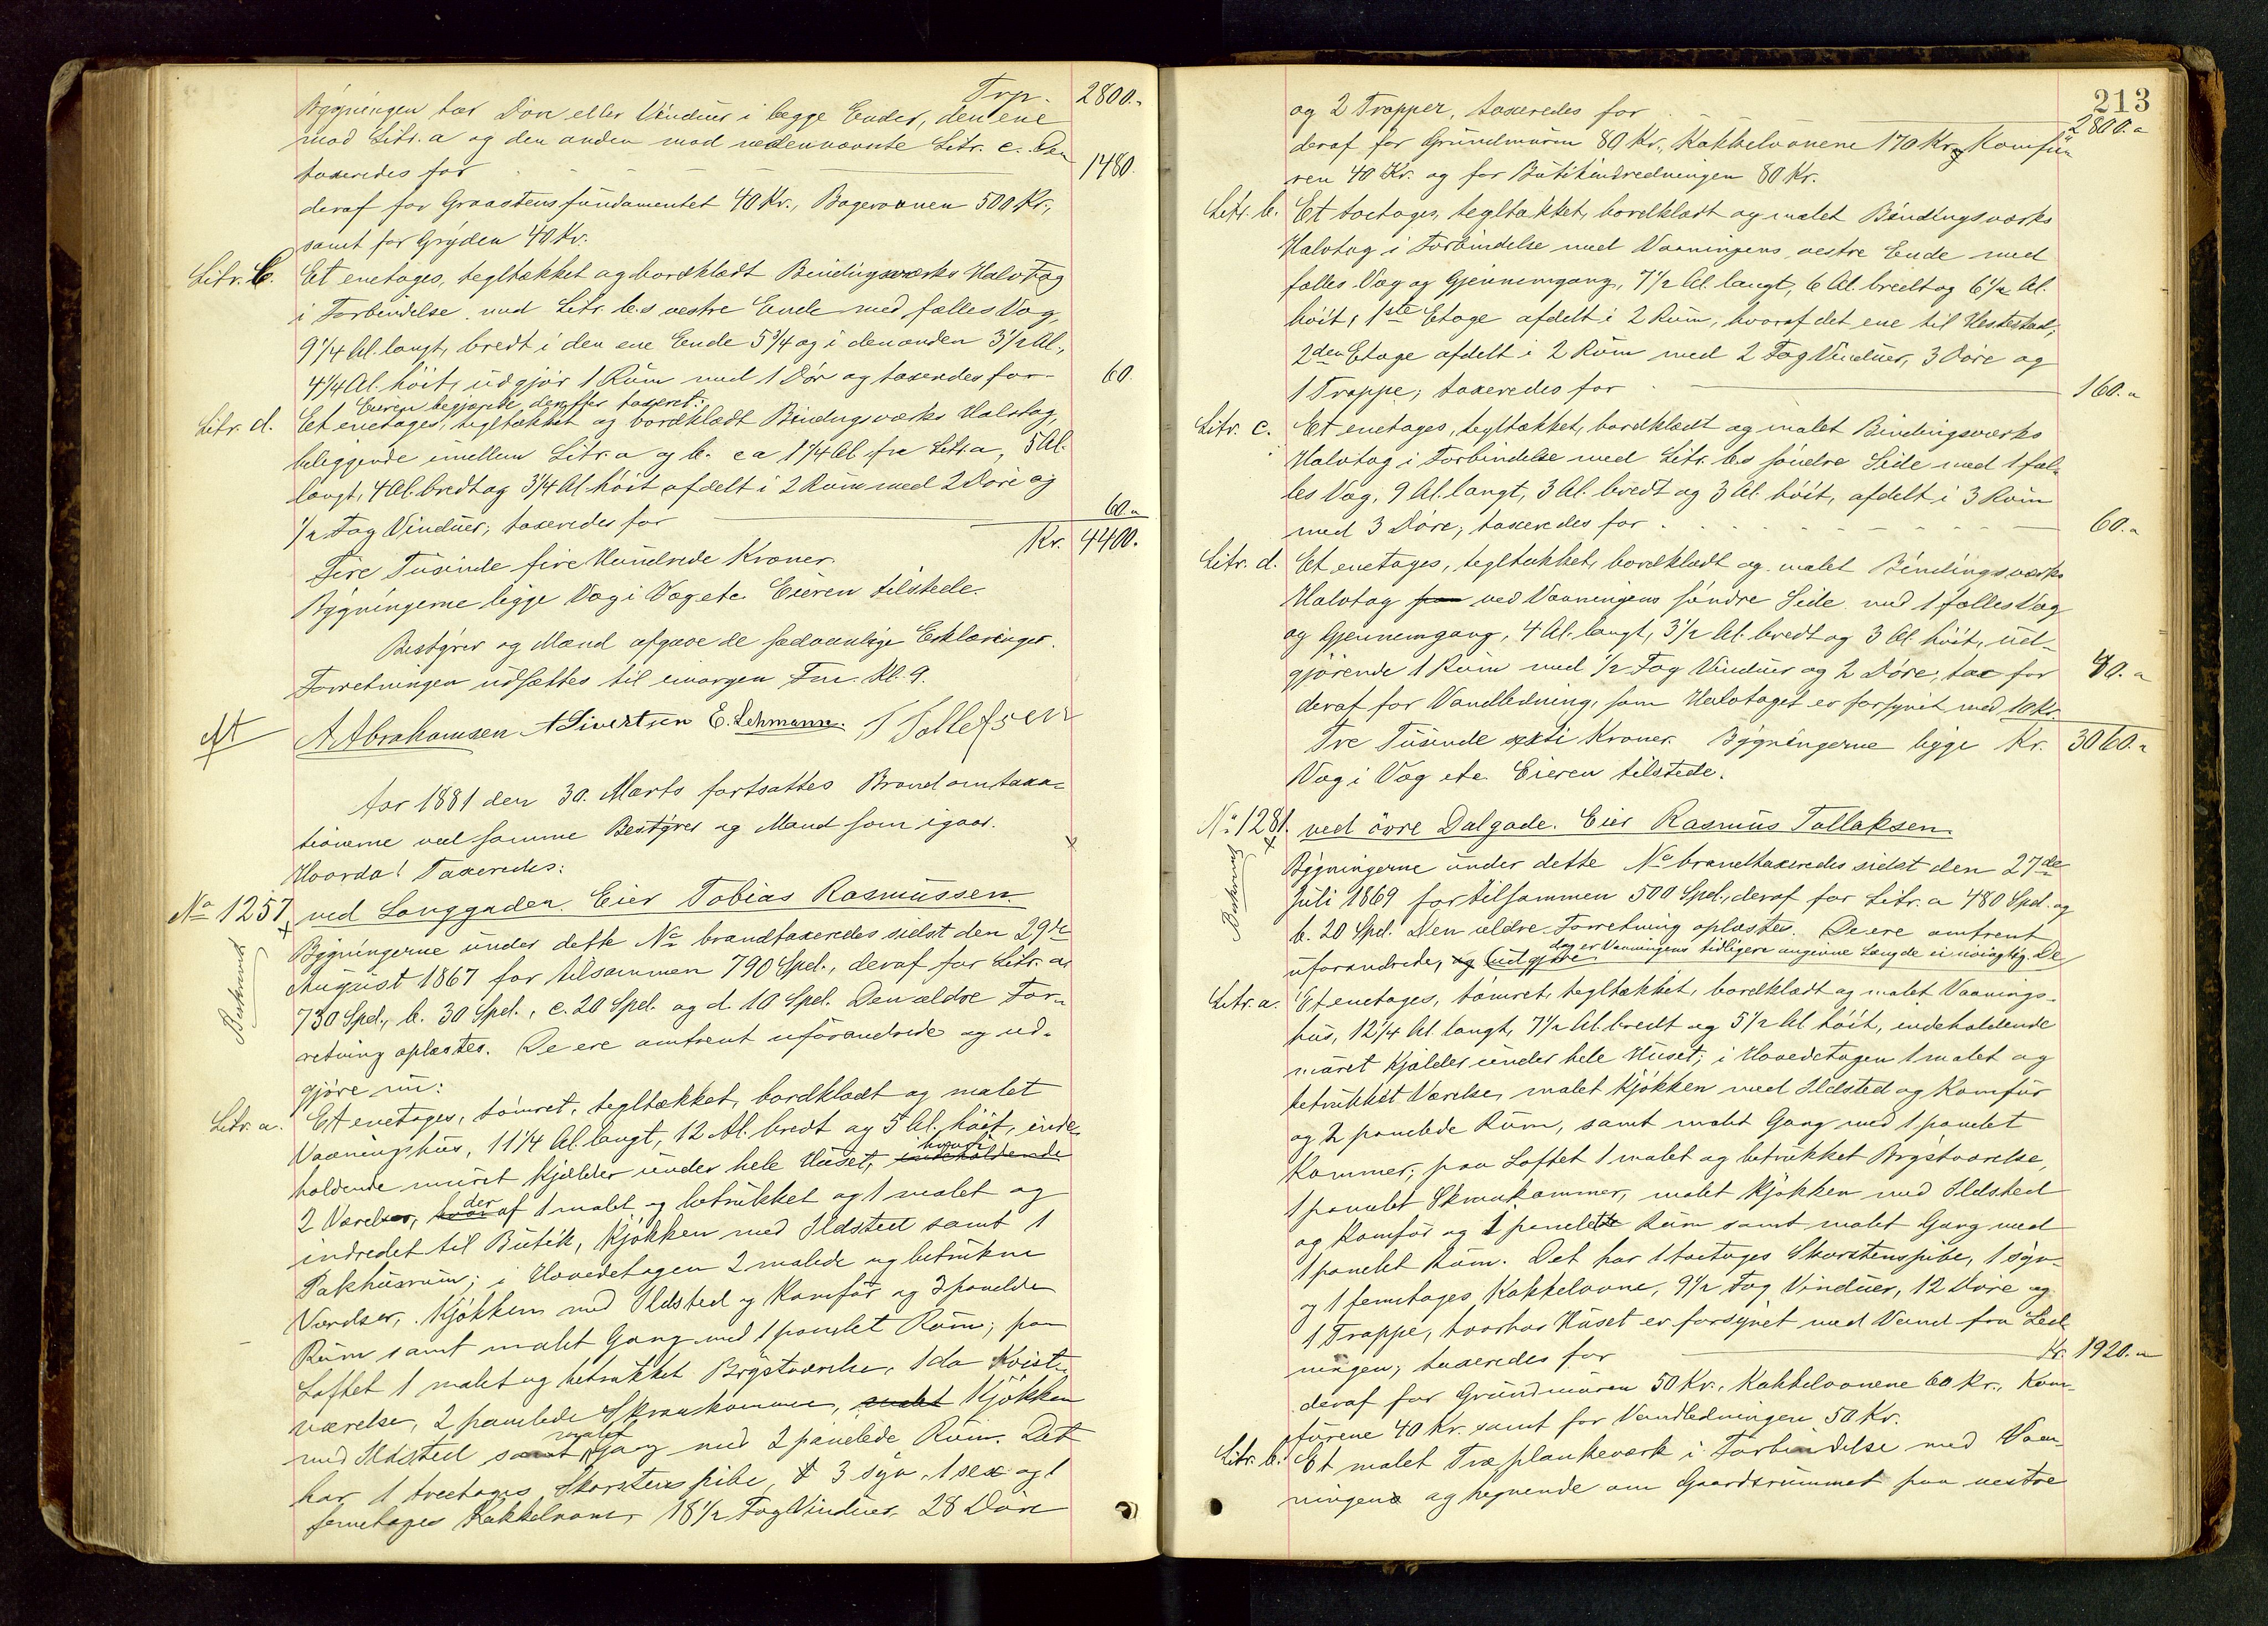 Trp. 2800.-
Bygningen har Döre eller Vinduer i begge Ender, den ene
mod Litr. a og den anden mod nedennævnte Litr. c. Den
taxeredes for - - - 1480.
deraf for Graastensfundamentet 40 Kr., Bagerovnen 500 Kr.,
samt for Gryden 40 Kr.
Litr. C. Et enetages, tegltækket og bordklædt Bindingsværks Halvtag
i Forbindelse med Litr. b.s vestre Ende med fælles Væg,
9 1/4 Al. langt, bredt i den ene Ende 5 3/4 og i den anden 3 1/2 Al.,
4 1/4 Al. höit, udgjör 1 Rum med 1 Dör og taxeredes for - 60.
Eieren begjærede derefter taxeret:
Litr. d. Et enetages, tegltækket og bordklædt Bindingsværks Halvtag,
beliggende imellem Litr. a og b. ca 1 1/4 Al. fra Litr. a, 5 Al.
langt, 4 Al. bredt og 3 1/4 Al. höit afdelt i 2 Rum med 2 Döre og
1/2 Fag Vinduer; taxeredes for 60.-
Kr. 4400.
Fire Tusinde fire Hundrede Kroner.
Bygningerne ligge Væg i Væg etc. Eieren tilstede.
Bestyrer og Mænd afgave de sædvanlige Erklæringer.
Forretningen udsættes til imorgen Fm. Kl. 9.
A Abrahamsen A Sivertsen E. Lehmann. T Tollefsen
Aar 1881 den 30. Marts fortsattes Brandomtaxa-
tionerne ved samme Bestyrer og Mænd som igaar.
Hvorda! Taxeredes:
No 1257 ved Langgaden. Eier Tobias Rasmussen.
Bygningerne under dette No brandtaxeredes sidst den 29de
August 1867 for tilsammen 790 Spd., deraf for Litr. a
730 Spd., b. 30 Spd., c. 20 Spd. og d 10 Spd. Den ældre For-
retning oplæstes. De ere omtrent uforandrede og ud-
gjöre nu:
Litr. a. Et enetages, tömret, tegltækket, bordklædt og malet
Vaaningshus, 11 1/4 Al. langt, 12 Al. bredt og 5 Al. höit, inde-
holdende muret Kjælder under hele Huset, indeholdende hvori
2 Værelser, hvoraf deraf 1 malet og betrukket og 1 malet og
indredet til Butik, Kjökken med Ildsted samt 1
Pakhusrum; i Hovedetagen 2 malede og betrukne
Værelser, Kjökken med Ildsted og Komfur og 3 panelede
Rum samt malet Gang med 1 panelet Rum; paa
Loftet 1 malet og betrukket Brystværelse, 1 do Kvist-
værelse, 2 panelede Skraakammere, malet Kjökken
med Ildsted samt malet Gang med 2 panelede Rum. Det
har 1 treetages Skorstenspibe, 3 syv-, 1 sex og 1
femetages Kakkelovne, 18 1/2 Fag Vinduer, 28 Döre
213
og 2 Trapper, taxeredes for 2800.-
deraf for Grundmuren 80 Kr., Kakkelovnene 170 Kr. og Komfu-
ren 40 Kr. og for Butikindredningen 80 Kr.
Litr. b. Et toetages, tegltækket, bordklædt og malet Bindingsværks
Halvtag i Forbindelse med Vaaningens vestre Ende med
fælles Væg og Gjennemgang, 7 1/2 Al. langt, 6 Al. bredt og 6 1/2 Al.
höit, 1ste Etage afdelt i 2 Rum, hvoraf det ene til Hestestald,
2den Etage afdelt i 2 Rum med 2 Fag Vinduer, 3 Döre og
1 Trappe; taxeredes for 160.-
Litr. c. Et enetages, tegltækket, bordklædt og malet Bindingsværks
Halvtag i Forbindelse med Litr. b.s söndre Side med 1 fæl-
les Væg, 9 Al. langt, 3 Al. bredt og 3 Al. höit, afdelt i 3 Rum
med 3 Döre; taxeredes for 60.-
Litr. d. Et enetages, tegltækket, bordklædt og malet Bindingsværks
Halvtag paa ved Vaaningens söndre Side med 1 fælles Væg
og Gjennemgang, 4 Al. langt, 3 1/2 Al. bredt og 3 Al. höit, ud-
gjörende 1 Rum med 1/2 Fag Vinduer og 2 Döre; tax for 40.-
deraf for Vandledning, som Halvtaget er forsynet med 10 Kr.
Tre Tusinde sexti Kroner. Bygningerne ligge Kr. 3060.-
Væg i Væg etc. Eieren tilstede.
No 1281. ved övre Dalgade. Eier Rasmus Tallaksen.
Bygningerne under dette No brandtaxeredes sidst den 27de
Juli 1869 for tilsammen 500 Spd., deraf for Litr. a 480 Spd. og
b. 20 Spd. Den ældre Forretning oplæstes. De ere omtrent
uforandrede, og dog er Vaaningens tidligere angivne Længde ei nöiagtig. De
udgjöre
Litr. a. Et enetages, tömret, tegltækket, bordklædt og malet Vaanings-
hus, 12 1/4 Al. langt, 7 1/2 Al. bredt og 5 1/2 Al. höit, indeholdende
muret Kjælder under hele Huset; i Hovedetagen 1 malet og
betrukket Værelse, malet Kjökken med Ildsted og Komfur
og 2 panelede Rum, samt malet Gang med 1 panelet
Kammer; paa Loftet 1 malet og betrukket Brystværelse,
1 panelet Skraakammer, malet Kjökken med Ildsted
og Komfur og 1 panelet Rum samt malet Gang med
1 panelet Rum. Det har 1 toetages Skorstenspibe, 1 syv-
og 1 femetages Kakkelovne, 9 1/2 Fag Vinduer, 12 Döre og
1 Trappe, hvorhos Huset er forsynet med Vand fra Led-
ningen; taxeredes for Kr. 1920.-
deraf for Grundmuren 50 Kr., Kakkelovnene 60 Kr., Kom-
furene 40 Kr. samt for Vandledningen 50 Kr.
Litr. b. Et malet Træplankeværk i Forbindelse med Vaa-
ningen og hegnende om Gaardsrummet paa vestre